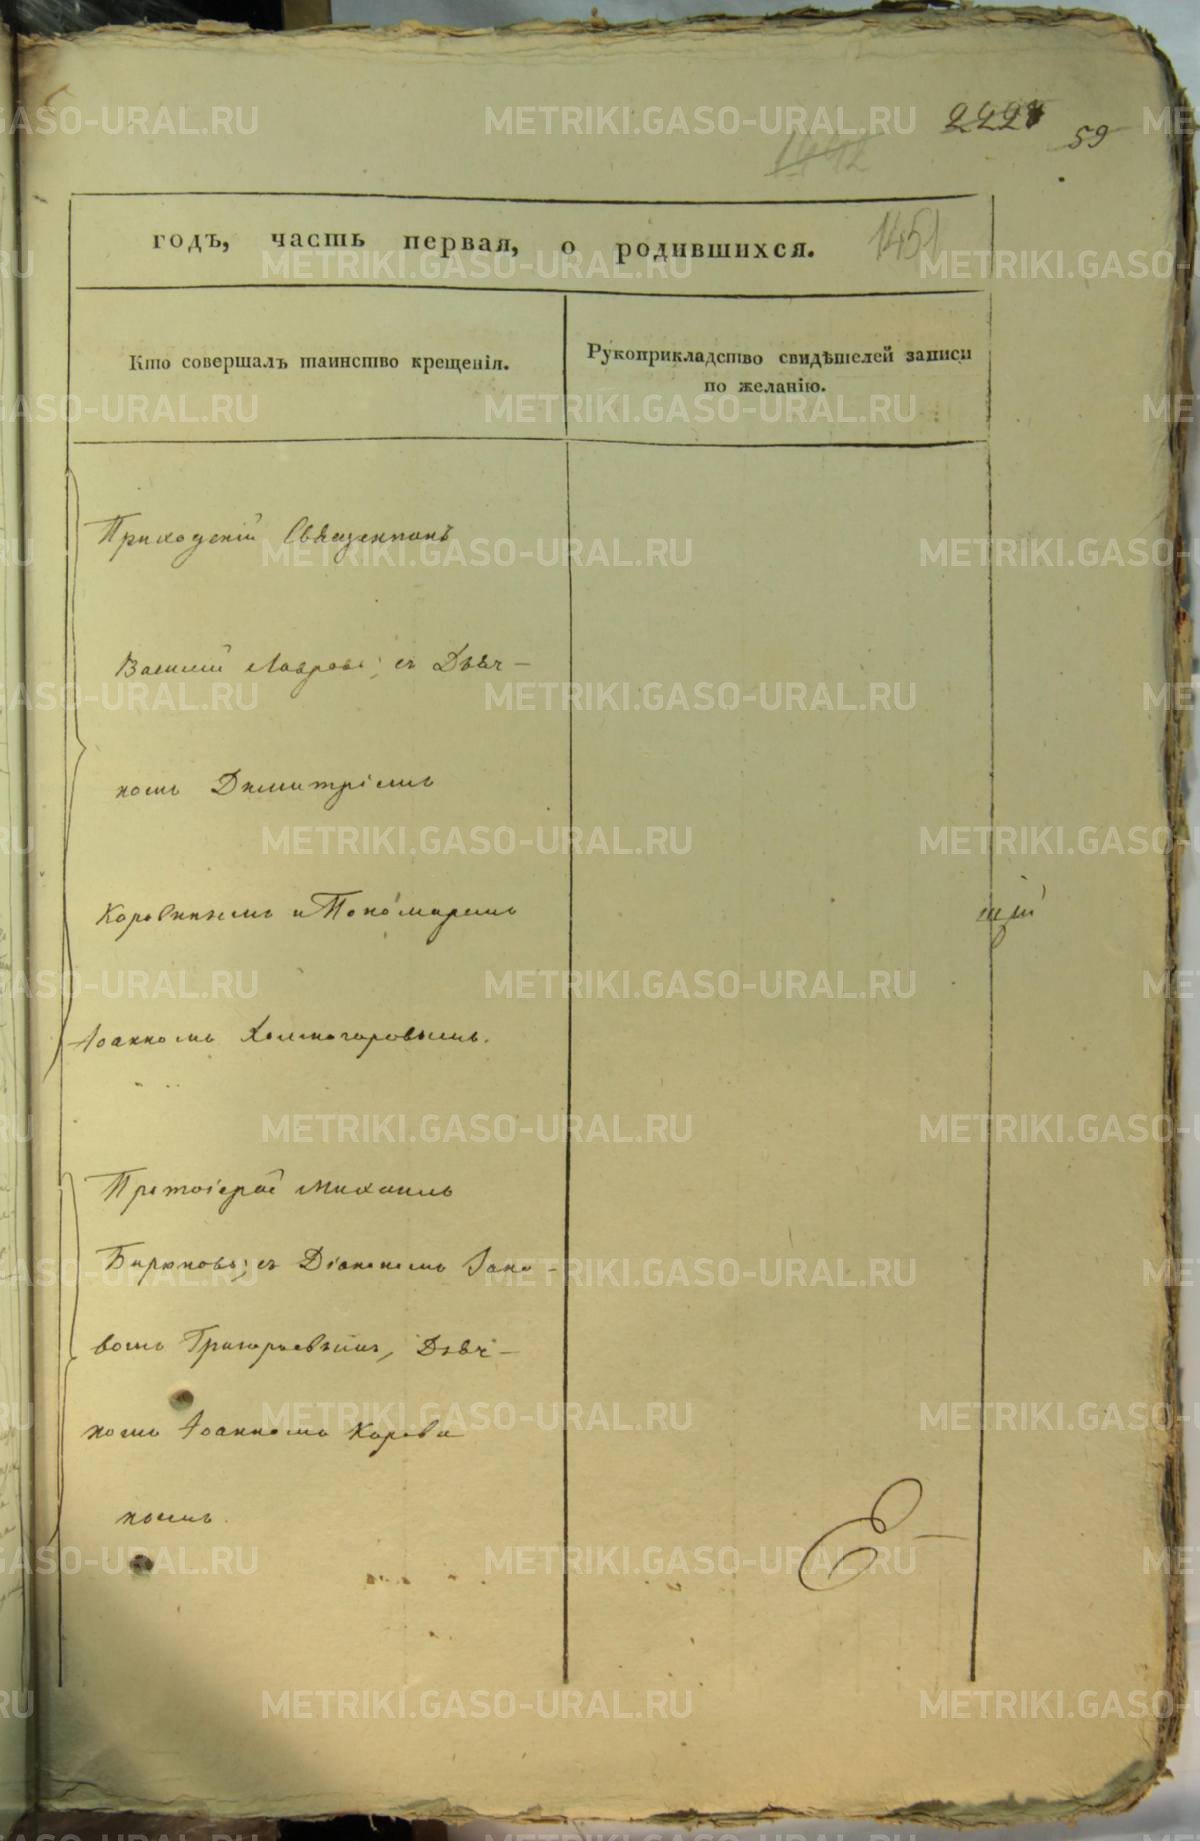 2228
59
1442
1451
годъ, часть первая, о родившихся.
Кто совершалъ таинство крещенія.
Рукоприкладство свидѣтелей записи
по желанію.
Приходскій Священникъ
Василій Лавровъ; съ Дьяч-
комъ Димитріемъ
Коровинымъ и Пономаремъ
Іоанномъ Холмогоровымъ.
щій
Протоіерей Михаилъ
Бирюковъ; съ Діакономъ Іако-
вомъ Григорьевымъ, Дьяч-
комъ Іоанномъ Корови
нымъ.
METRIKI.GASO-URAL.RU